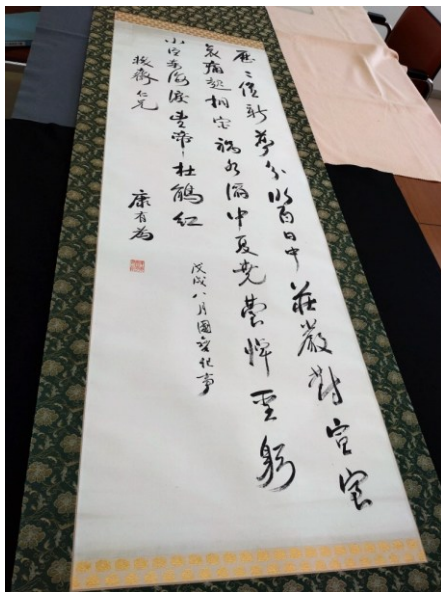 歷〻維新夢分明百日中莊嚴對宣室
哀痛起桐宮禍水滔中夏堯臺悼聖躬
小臣東海淚望帝杜鵑紅
戊戌八月國變紀事
齋仁兄
康有為